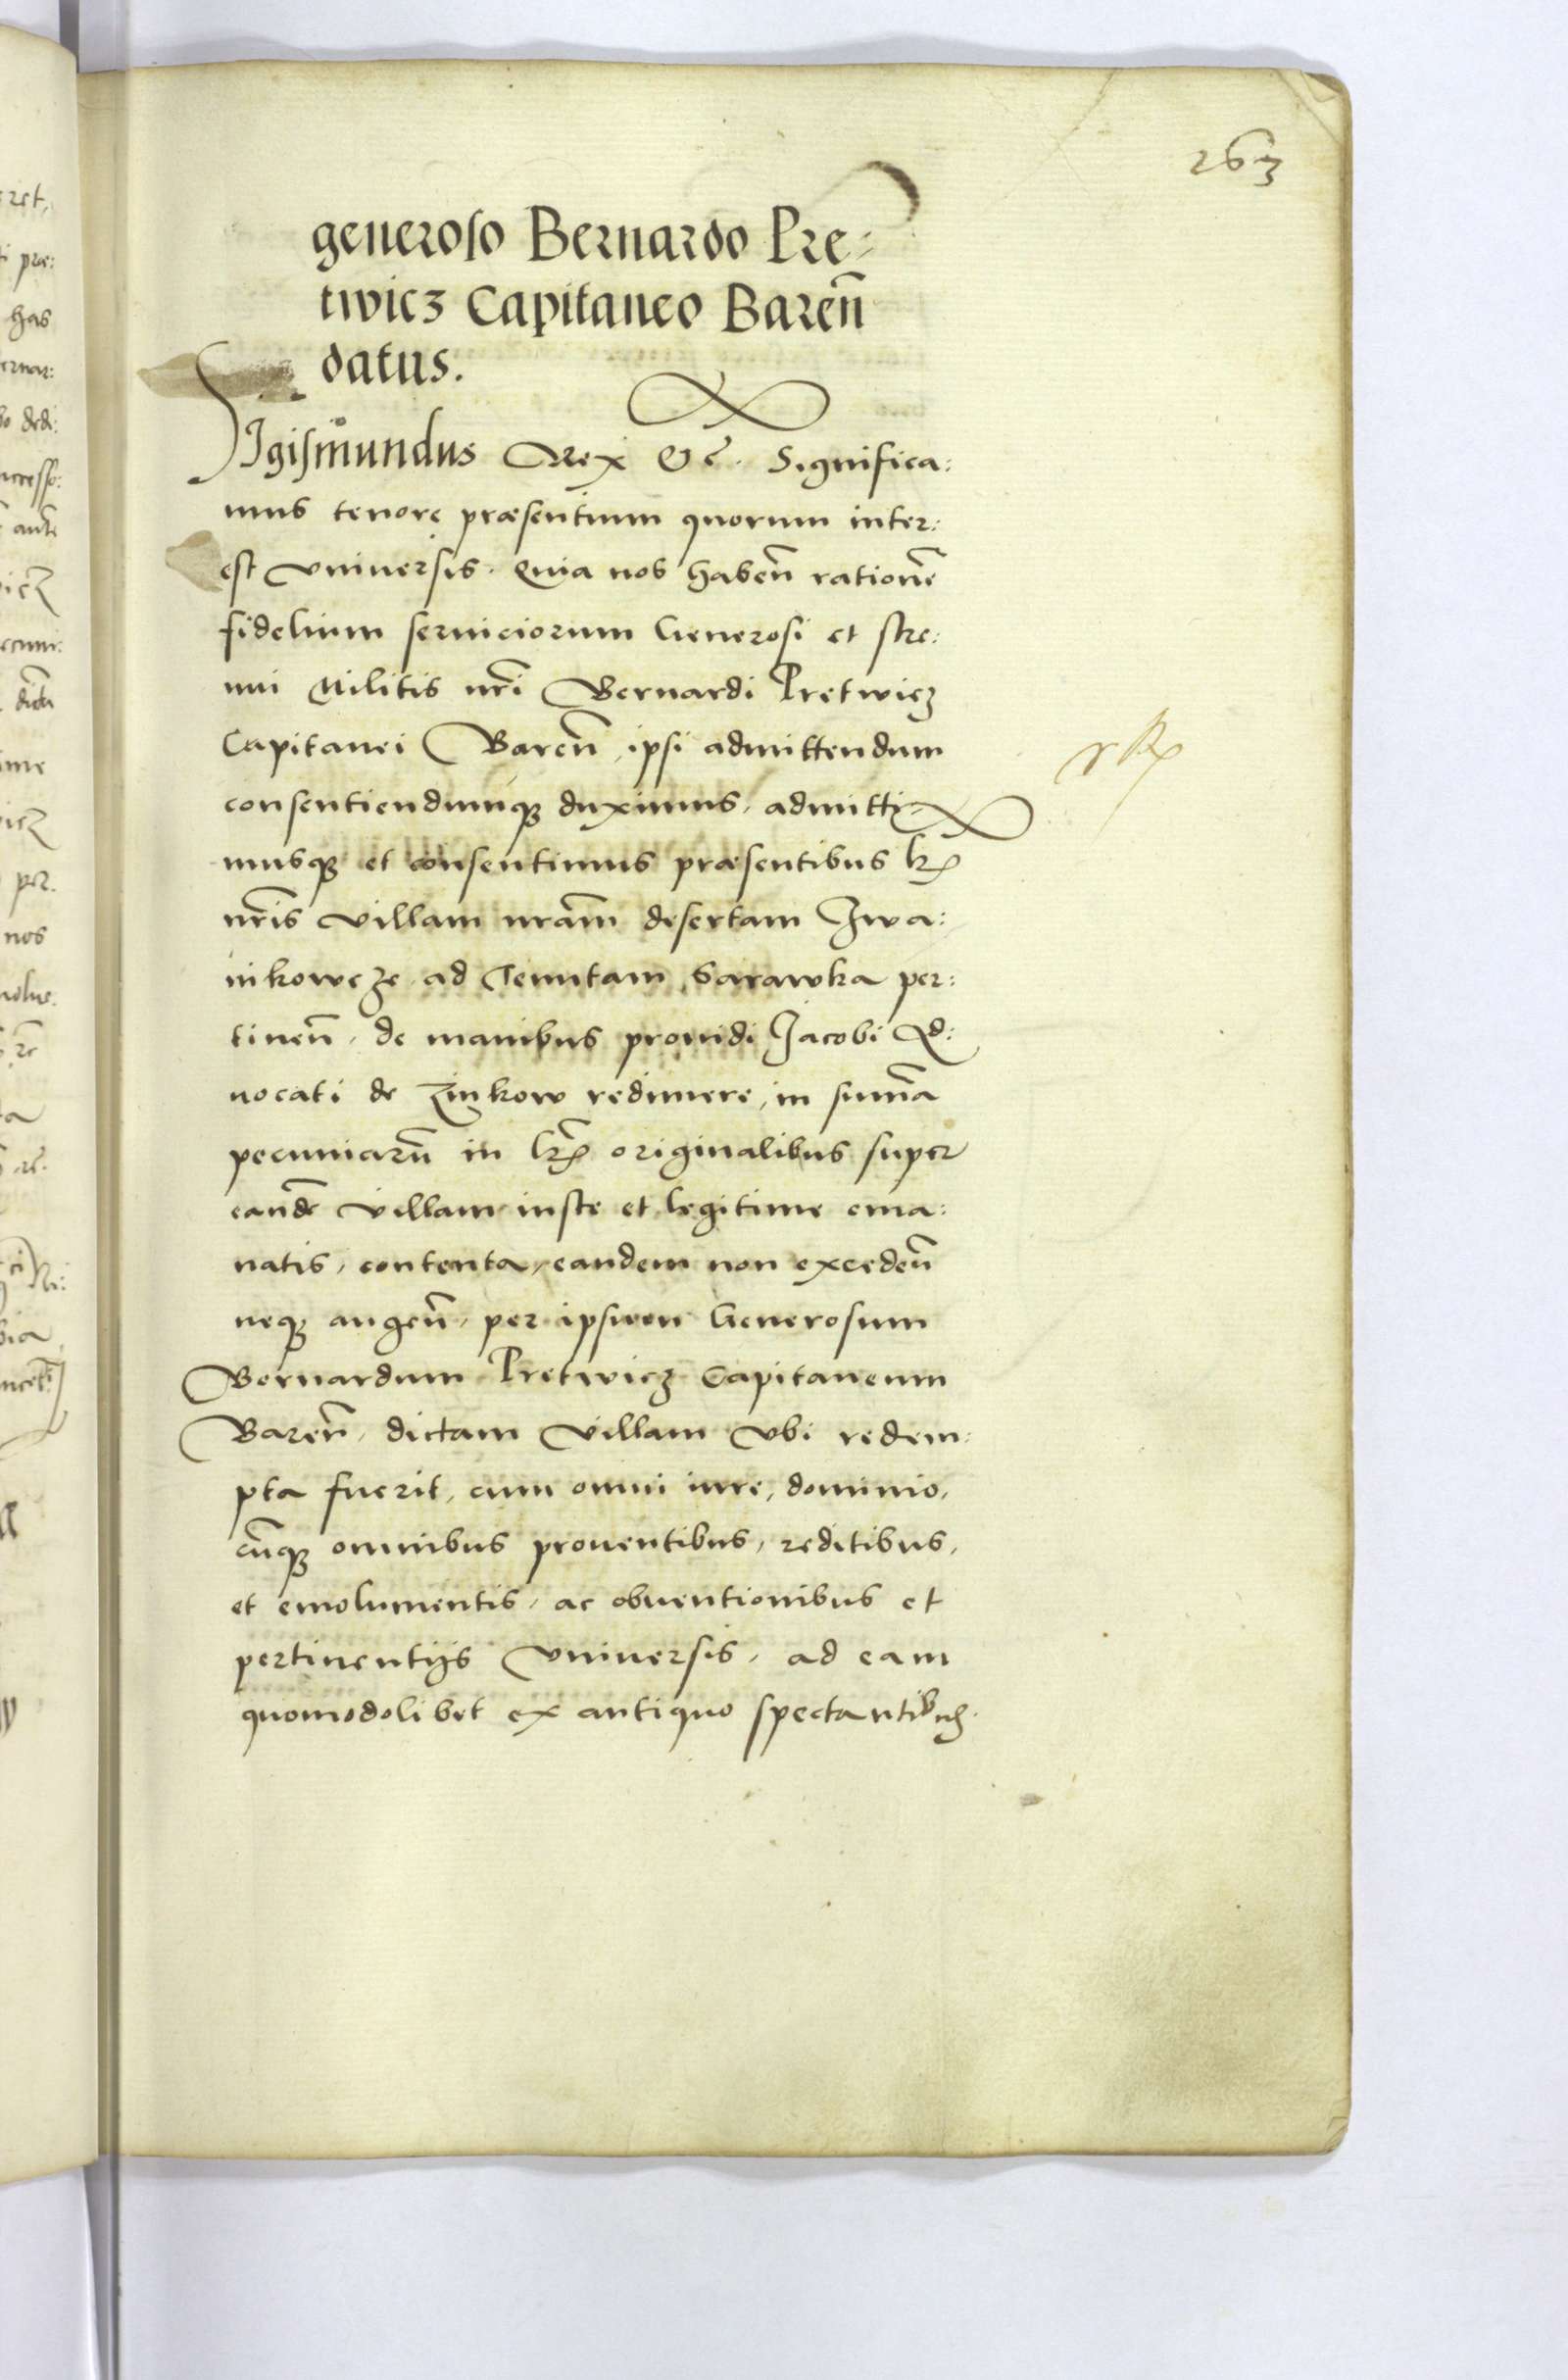 263
generoso Bernardo Pre=
twicz Capitaneo Bareñ
datus.
Sigismundus Rex &c. Significa:
mus tenore præsentium quorum inter:
est vniuersis. Quia nos habeñ rationē
fidelium seruiciorum Generosi et stre:
nui Militis nr̄i Bernardi Pretwicz
Capitanei Bareñ, ipsi admittendum
consentiendumq; duximus, admitti=
musq; et consentimus præsentibus lr̄is
nr̄is villam nr̄am desertam Iwa:
nikowcze ad Tenutam Sarawka per:
tineñ, de manibus prouidi Jacobi Ad:
uocati de Zinkow redimere, in sum̄a
pecuniarū in lr̄is originalibus super
eandē villam iuste et legitime ema:
natis, contenta, eandem non excedeñ
neq; augeñ, per ipsum Generosum
Bernardum Pretwicz Capitaneum
Bareñ, dictam villam vbi redem:
pta fuerit, cum omni iure, dominio,
cūq; omnibus prouentibus, reditibus,
et emolumentis, ac obuentionibus et
pertinentijs vniuersis, ad eam
quomodolibet ex antiquo spectantibus.